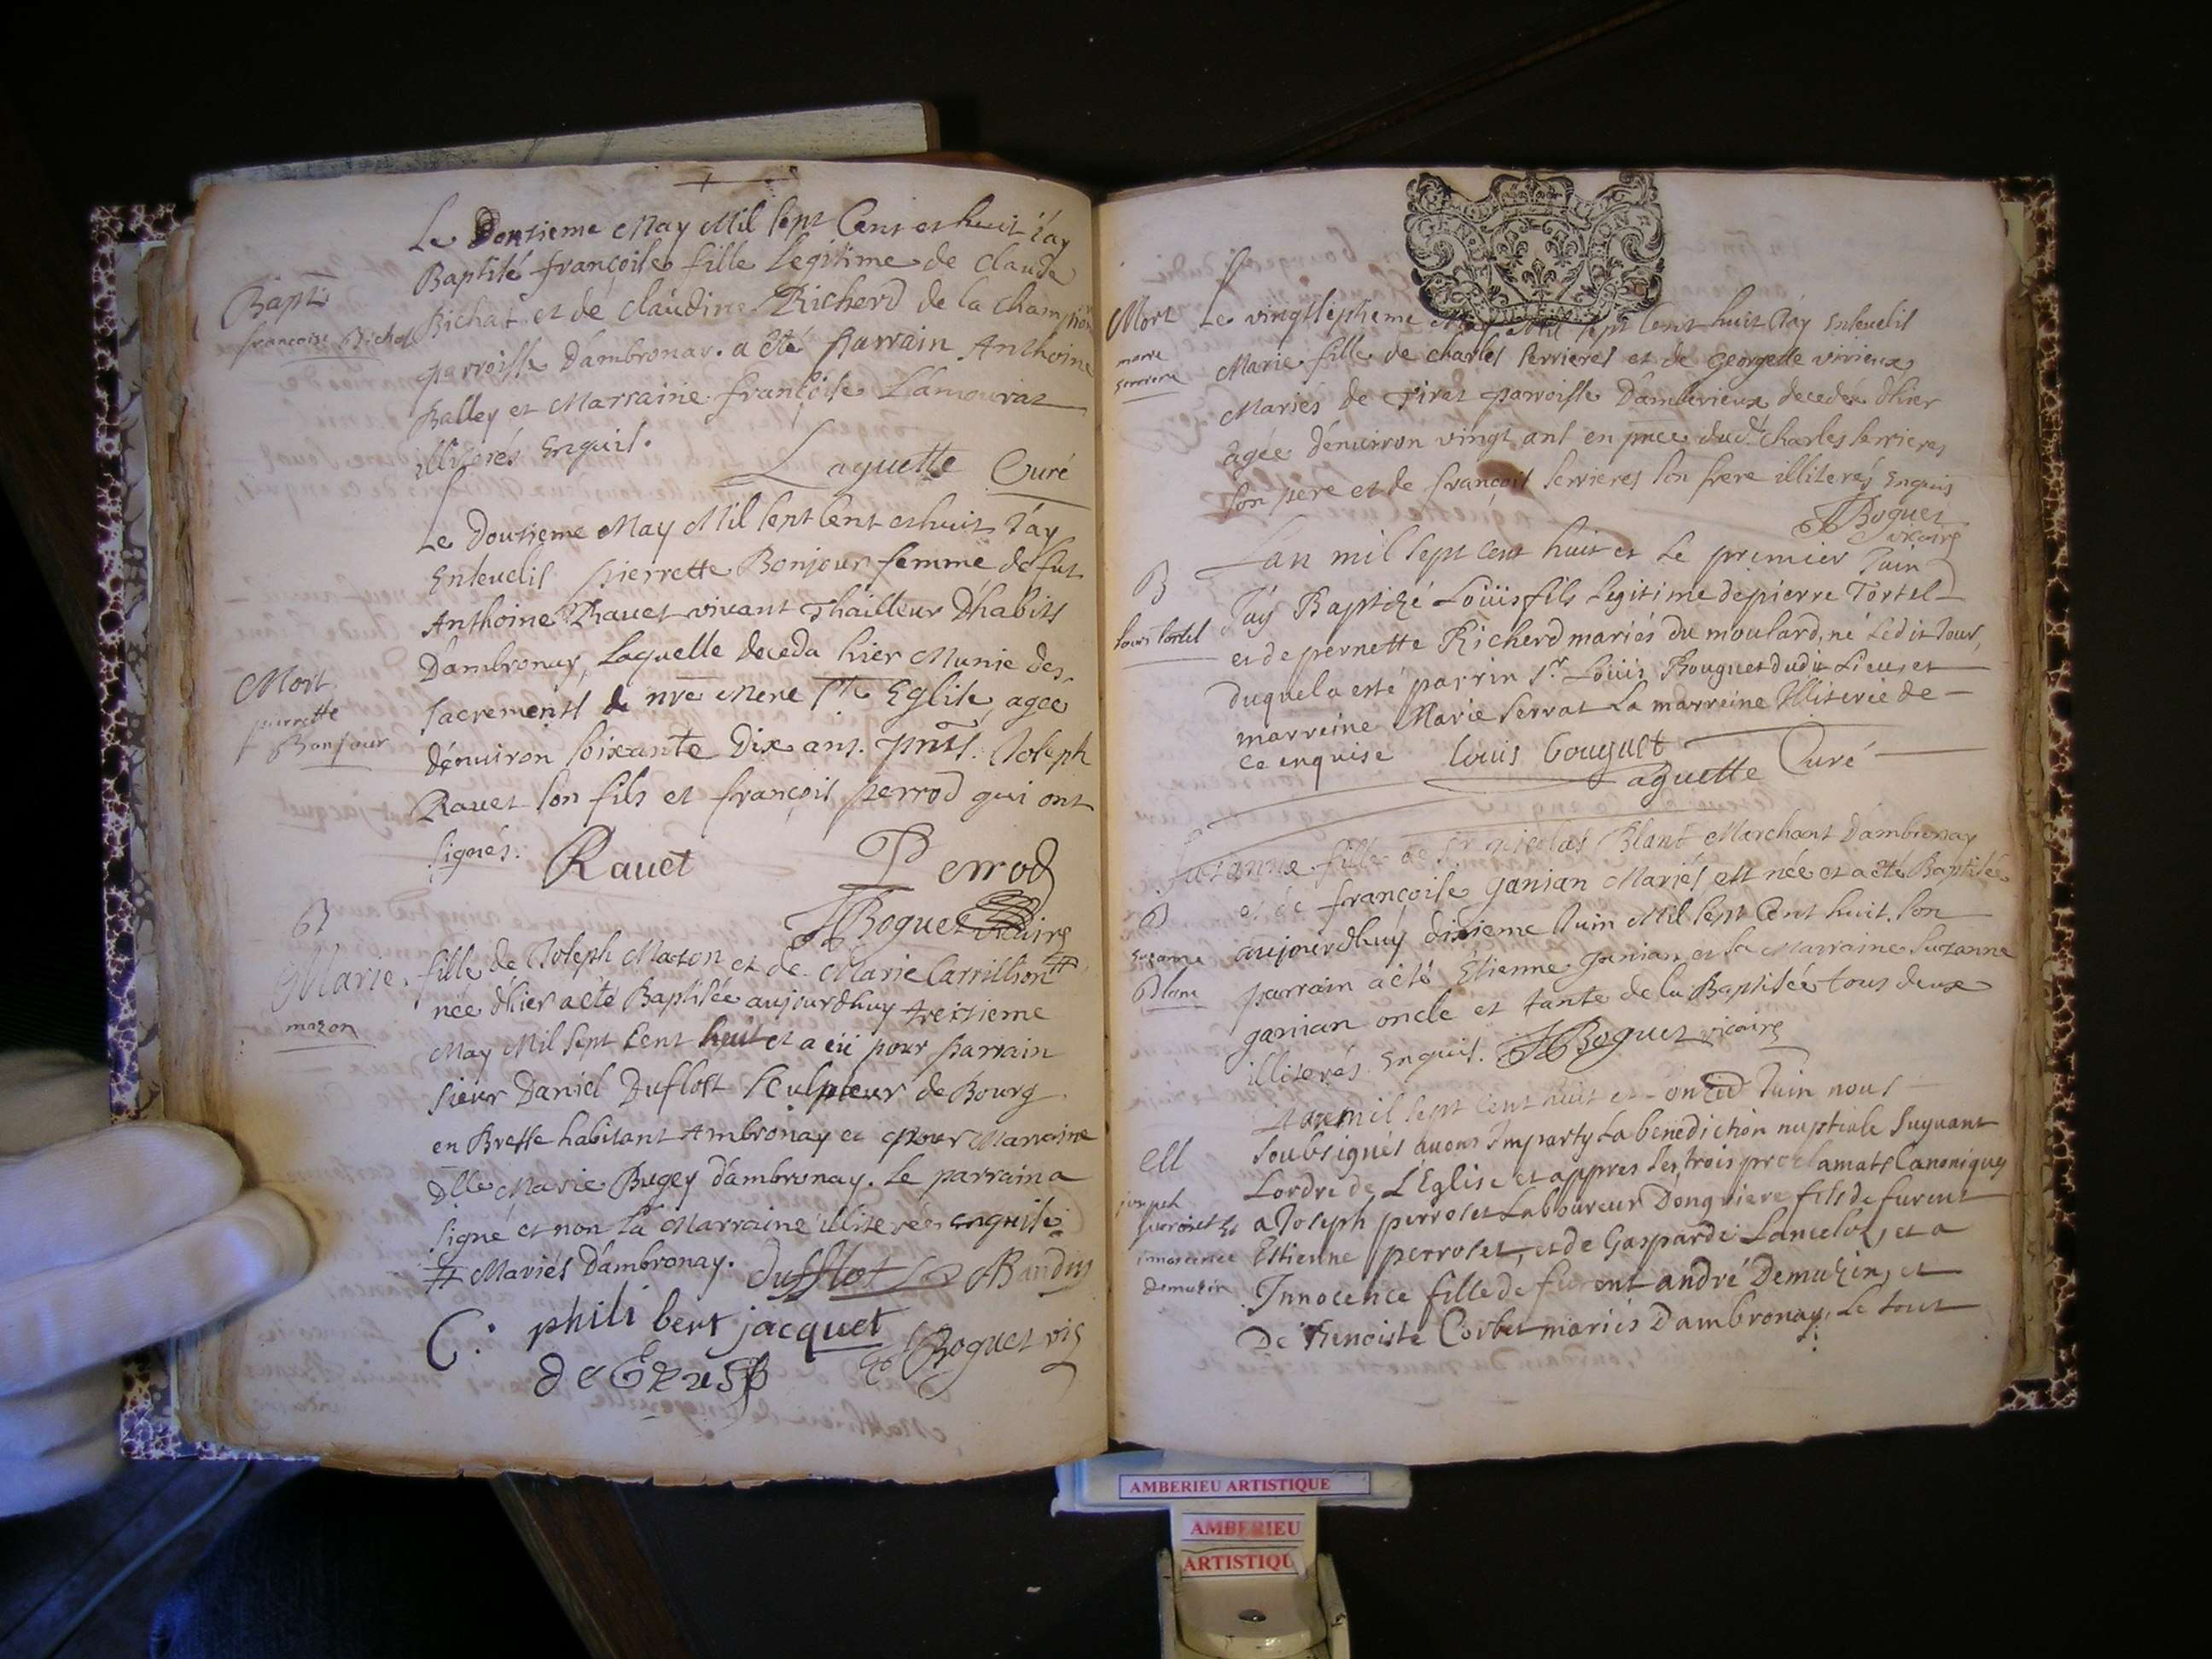 Le Douzieme May Mil sept Cent et huit J'ay
Baptisé françoise fille Legitime de claude
Richat et de claudine Richerd de la champ
parroisse Dambronay. a été Parrain Anthoine
Balley et Marraine françoise Lamourat
illiterés Enquis.
Laguette Curé
Bapt
francoise Richat
Le Douzieme May Mil sept Cent et huit J'ay
Enseueli pierrette Bonjour femme de fut
Anthoine Rauet viuant Thailleur Dhabits
Dambronay, Laquelle deceda hier Munie des
sacrements de nre mere Ste Eglise, agée
denuiron soixante Dix ans. pnts. Joseph
Rauet son fils et françois perrod qui ont
signés.
Rauet Perrod
JBoguet vicaire
Mort
pierrette
Bonjour
B
Marie. fille de Joseph Mazon et de Marie Carrillion #
née dhier a eté Baptisée aujourdhuy treizieme
May Mil sept Cent huit et a eü pour parrain
sieur Daniel Duflost sculpteur de Bourg
en Bresse habitant Ambronay et pour Marraine
Dlle Marie Bugey dambronay. Le parrain a
signé et non la Marraine illiterée enquise
# Mariés Dambronay. dufflot Baudin
C: philibert jacquet
JBoguet vic
mazon
Mort
marie
serriere
Le vingtseptieme May Mil sept Cent huit J'ay Enseueli
Marie fille de charles serrieres et de Georgette virieux
Mariés de Tiret parroisse Damberieux decedée dhier
agée denuiron vingt ans en pnce dudt. charles serrieres
son pere et de françois serrieres son frere illiterés Enquis
JBoguet
vicaire
B
louis tortel
Lan mil sept cent huit et le premier Juin
J'ay Baptizé Loüis fils Legitime de pierre Tortel
et de pernette Richerd mariés du moulard, né Ledit Jour,
duquel a esté parrin Sr. Loüis Bouguet dudit Lieu, et
marreine Marie serrat La marreine Illiterée de
ce enquise louis bouguet
Laguette Curé
B
Suzanne
Blanc
Suzanne fille de Sr nicolas Blanc Marchant Dambronay
et de françoise ganian Mariés, est née et a eté Baptisée
aujourdhuy dixieme Juin Mil sept Cent huit. son
parrain a eté Etienne ganian et sa Marraine Suzanne
ganian oncle et tante de la Baptisée tous deux
illiterés Enquis. JBoguet vicaire
Lan mil sept Cent huit et onze Juin nous
soubsignés auons Imparty La benediction nuptiale suyuant
Lordre de L'Eglise et appres les trois proclamats Canoniques
a Joseph perroset Laboureur Donqviere fils de furent
Estienne perroset, et de Gasparde Lancelot, et a
Innocence fille de furent andré Demuzin, et
De Benoiste Corbet mariés Dambronay, Le tout
joseph
perroset et
innocence
demuzin
AMBERIEU ARTISTIQUE
AMBERIEU
ARTISTIQU